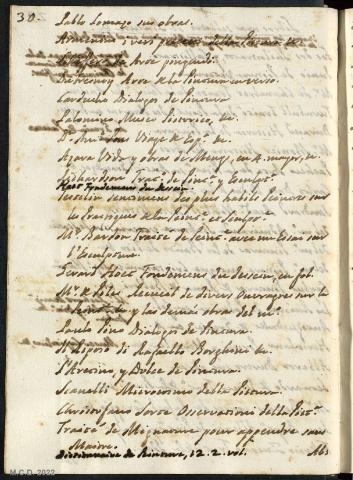 30.
Pablo Lomazo sus obras.
Armenini i veri precetti della Pittura &c.
de Arte pingendi
Dufresnoy Arte de la Pintura en verso.
Carducho Dialogos de Pintura
Palomino Museo Pictorico, &c.
D. Ant. Pons Viage de Esp.ª &c.
Azara Vida y obras de Mengs, en 4. mayor, &c.
Richardson Trat.º de Pint.ª y Escult.ª
Testelin sentimens des plus habils Peintres sur
les Pratiques de la Peint.ª et Sculpt.ª
M.r Bardon Traité de Peint.ª avec un Essai sur
l'Sculpture.
Gerard Hoet Fondemens du dessein, en fol.
M.r de Piles Recueil de divers Ouvrages sur la
Peint.ª y las demas obras del m.º
Paulo Pino Dialogos de Pintura.
Il Riposo di Rafaello Borghini &c.
l'Aretino, y Dolce de Pintura.
Scanelli Microcosmo della Pittura.
Osservazioni della Pitt.ª
Traité de Mignature pour apprendre sans
Maitre.
Dictionnaire de Peinture, 12. 2. vol.
M.C.D. 2022